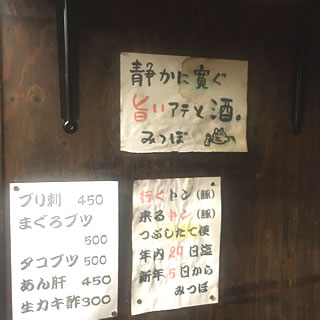 静かに寛ぐ
旨いアテと酒。
みつぼ
ブリ刺 450
まぐろブツ
500
タコブツ 500
あん肝 450
生カキ酢300
行くトン(豚)
来るトン(豚)
つぶしたて便
年内29日迄
新年5日から
みつぼ